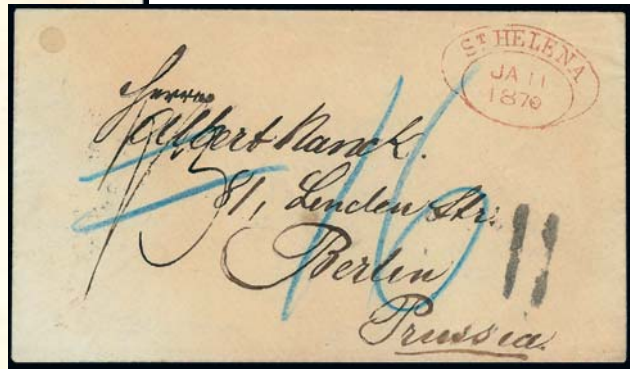 ST HELENA
JA 11
1870
Herrn
Albert Ranck.
81, Linden Str.
Berlin
Prussia.
16
11